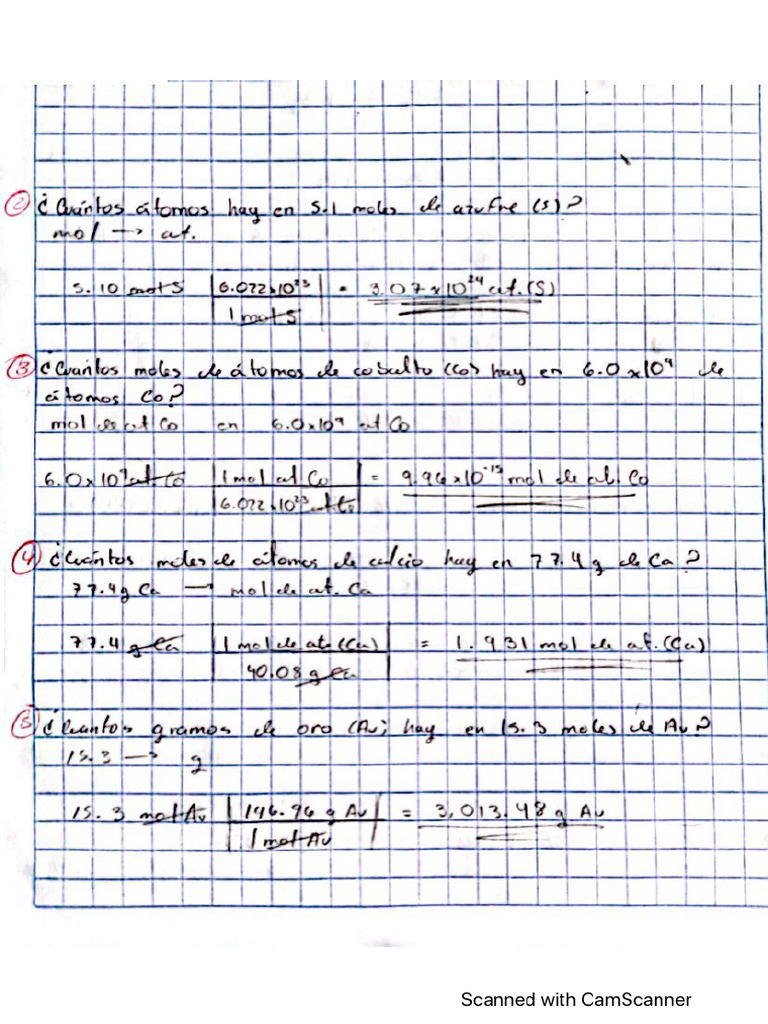 ② ¿Cuántos átomos hay en 5.1 moles de azufre (S)?
mol → at.
5.10 mol S | 6.022x10²³ / 1 mol S | = 3.07x10²⁴ at. (S)
③ ¿Cuántos moles de átomos de cobalto (Co) hay en 6.0x10⁹ de
átomos Co?
mol de at Co en 6.0x10⁹ at Co
6.0x10⁹ at Co | 1 mol at Co / 6.022x10²³ at Co | = 9.96x10⁻¹⁵ mol de at. Co
④ ¿Cuántos moles de átomos de calcio hay en 77.4 g de Ca?
77.4g Ca → mol de at. Ca
77.4 g Ca | 1 mol de at. (Ca) / 40.08 g Ca | = 1.931 mol de at. (Ca)
⑤ ¿Cuantos gramos de oro (Au) hay en 15.3 moles de Au?
15.3 → g
15.3 mol Au | 196.96 g Au / 1 mol Au | = 3,013.48 g Au
Scanned with CamScanner